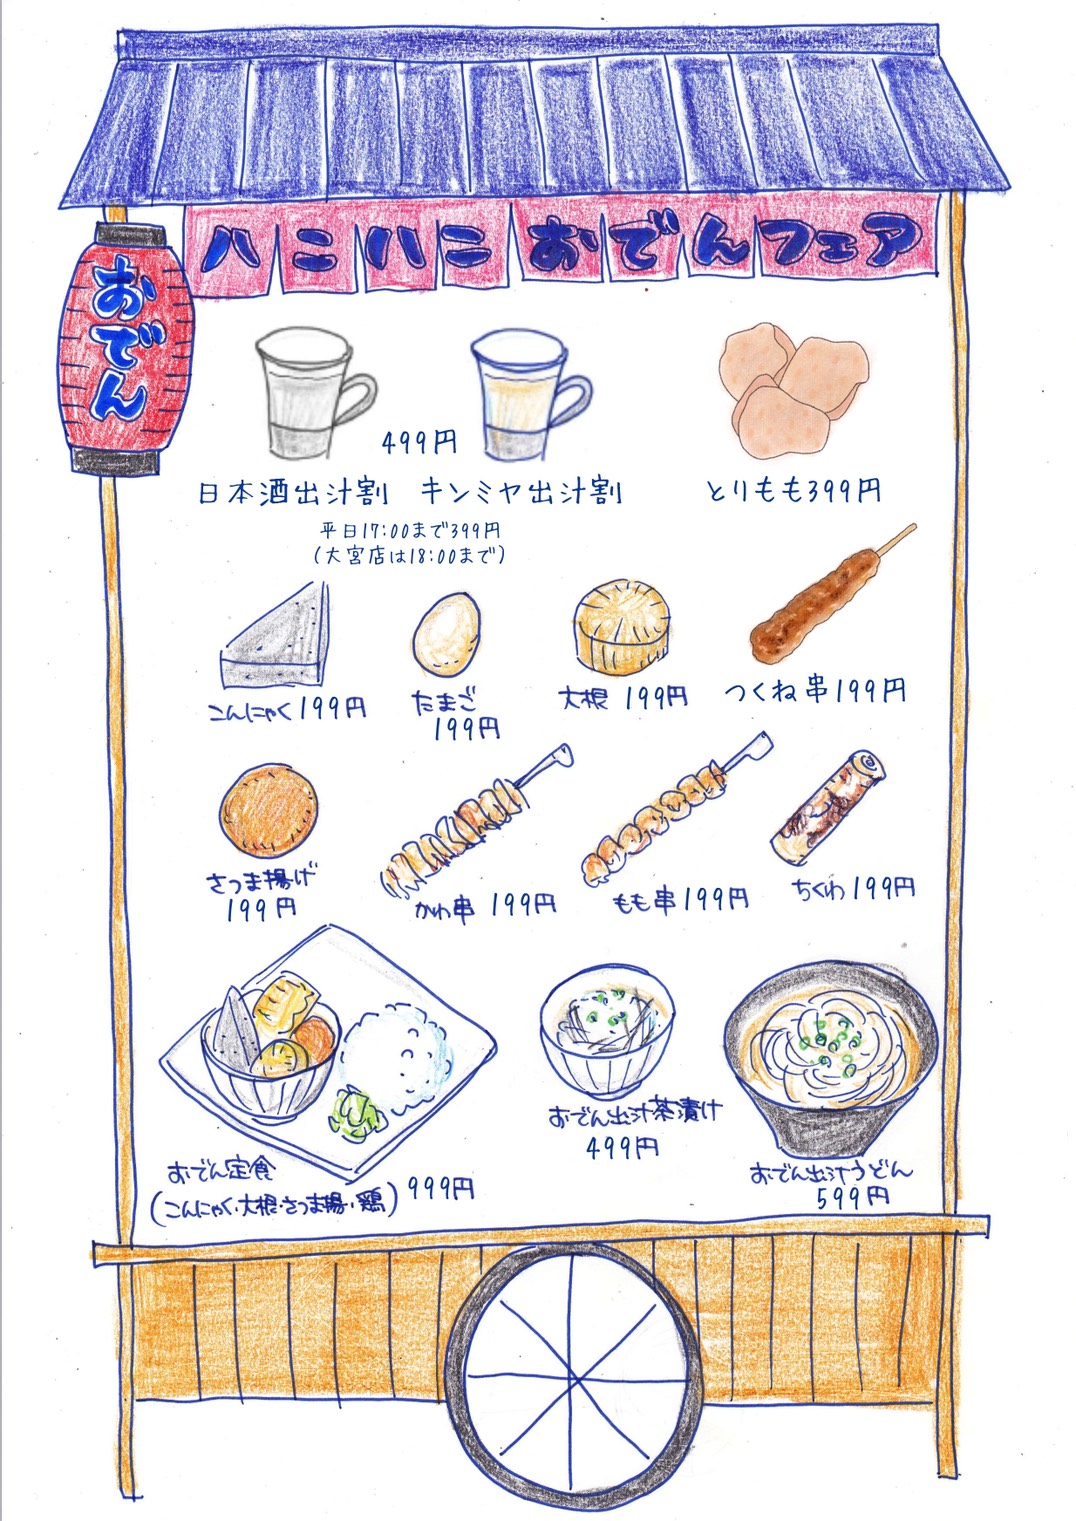 ハニハニおでんフェア
おでん
499円
日本酒出汁割 キンミヤ出汁割
平日17:00まで399円
(大宮店は18:00まで)
とりもも399円
こんにゃく199円
たまご
199円
大根 199円
つくね串199円
さつま揚げ
199円
かわ串 199円
もも串199円
ちくわ199円
おでん定食
(こんにゃく・大根・さつま揚・鶏) 999円
おでん出汁茶漬け
499円
おでん出汁うどん
599円